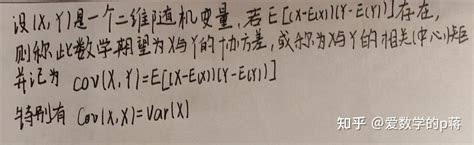 设(X,Y)是一个二维随机变量,若E[(X-E(X))(Y-E(Y))]存在,
则称此数学期望为X与Y的协方差,或称为X与Y的相关(中心)矩
并记为 cov(X,Y)=E[(X-E(X))(Y-E(Y))]
特别有 Cov(X,X)=Var(X)
知乎 @爱数学的p蒋